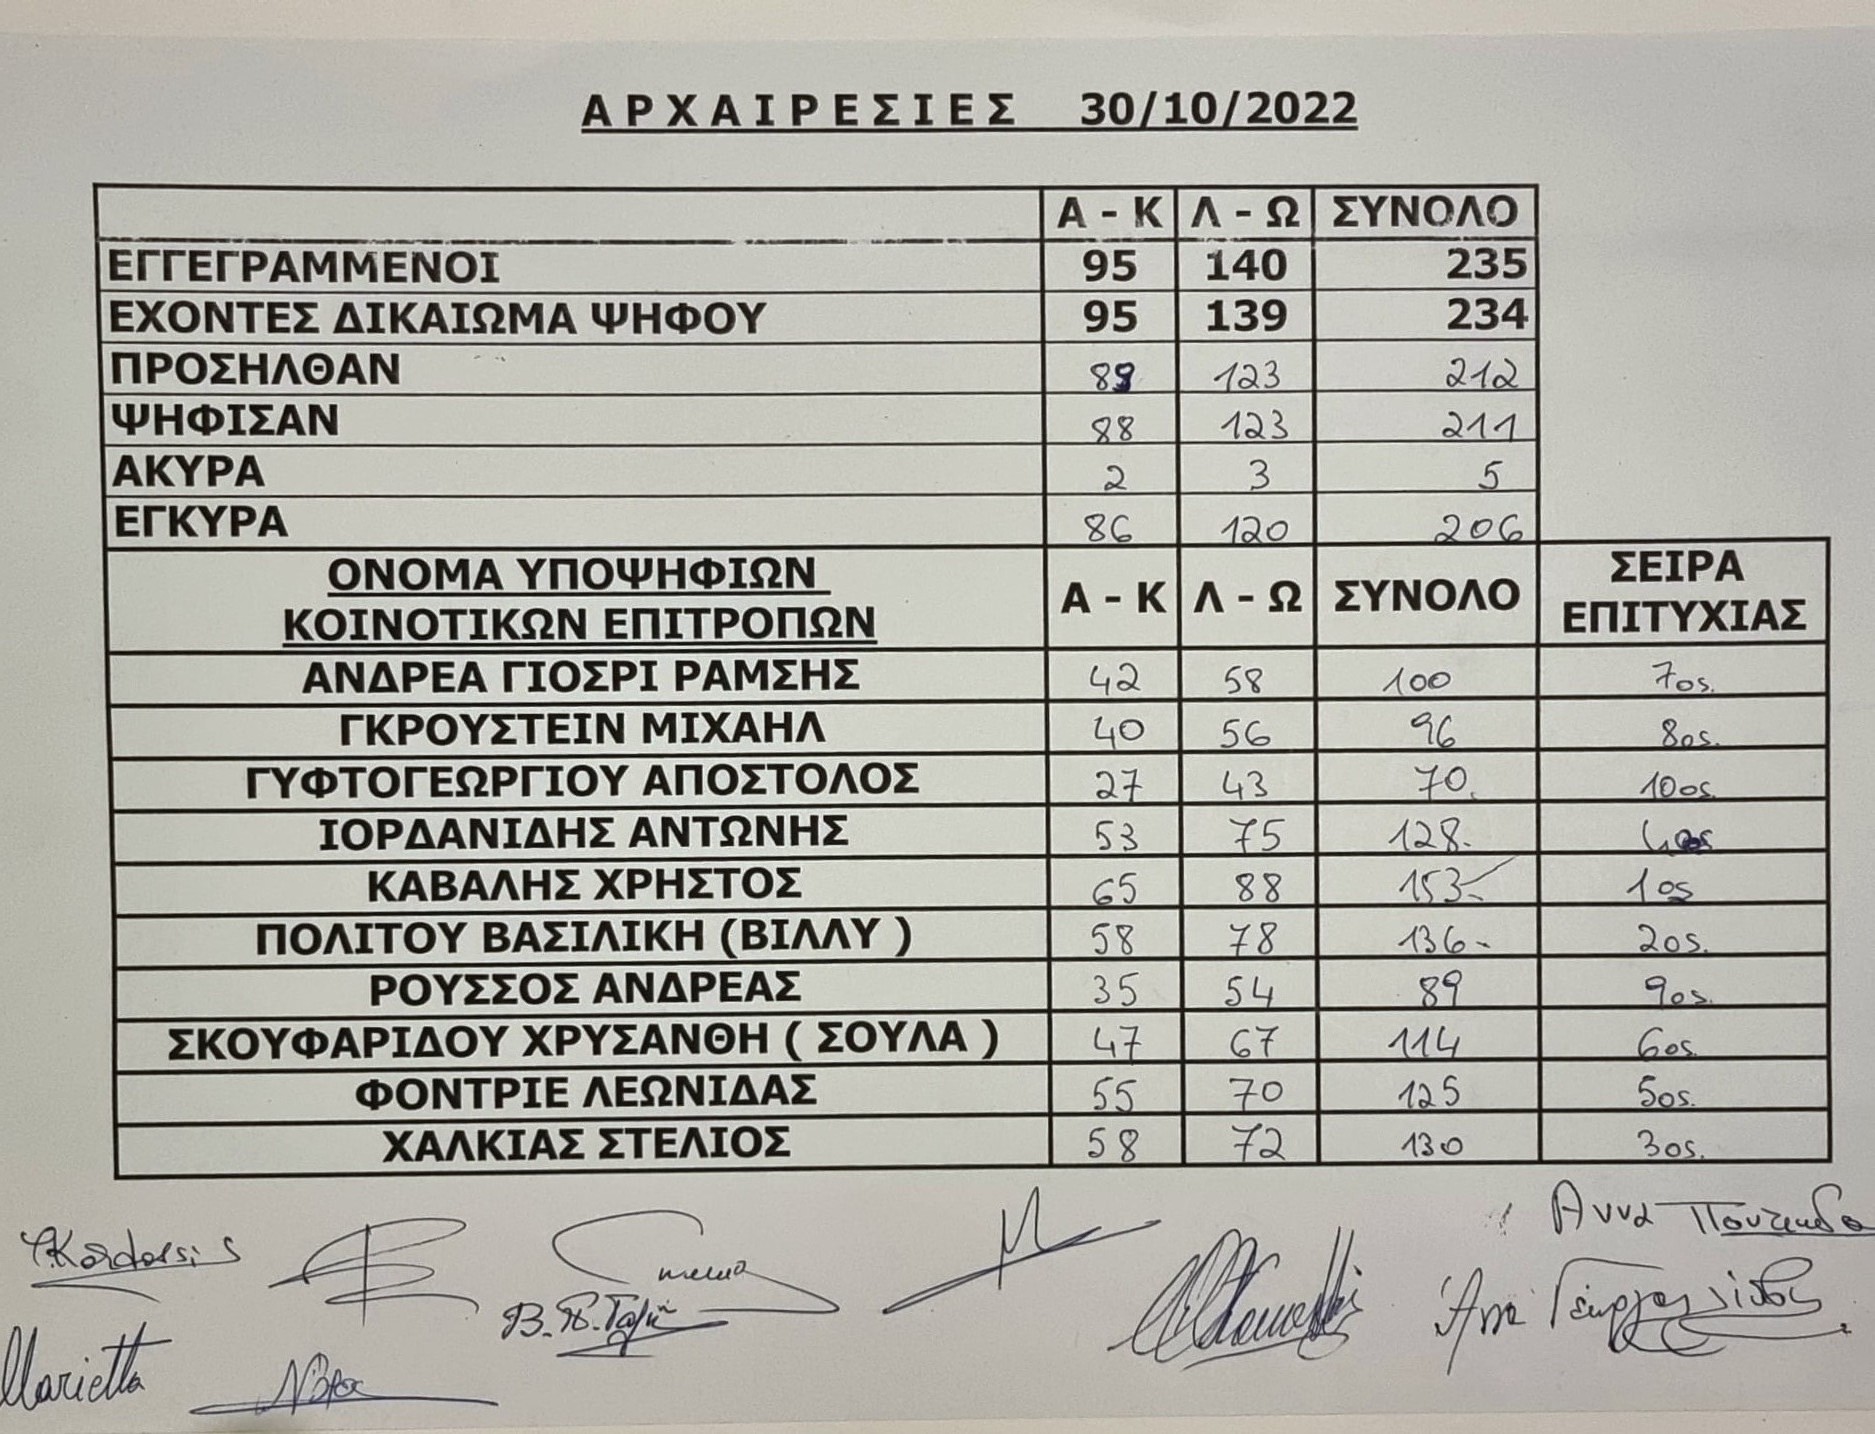 ΑΡΧΑΙΡΕΣΙΕΣ 30/10/2022
Α - Κ Λ - Ω ΣΥΝΟΛΟ
ΕΓΓΕΓΡΑΜΜΕΝΟΙ 95 140 235
ΕΧΟΝΤΕΣ ΔΙΚΑΙΩΜΑ ΨΗΦΟΥ 95 139 234
ΠΡΟΣΗΛΘΑΝ 89 123 212
ΨΗΦΙΣΑΝ 88 123 211
ΑΚΥΡΑ 2 3 5
ΕΓΚΥΡΑ 86 120 206
ΟΝΟΜΑ ΥΠΟΨΗΦΙΩΝ
ΚΟΙΝΟΤΙΚΩΝ ΕΠΙΤΡΟΠΩΝ Α - Κ Λ - Ω ΣΥΝΟΛΟ ΣΕΙΡΑ
ΕΠΙΤΥΧΙΑΣ
ΑΝΔΡΕΑ ΓΙΟΣΡΙ ΡΑΜΣΗΣ 42 58 100 7ος.
ΓΚΡΟΥΣΤΕΙΝ ΜΙΧΑΗΛ 40 56 96 8ος.
ΓΥΦΤΟΓΕΩΡΓΙΟΥ ΑΠΟΣΤΟΛΟΣ 27 43 70. 10ος.
ΙΟΡΔΑΝΙΔΗΣ ΑΝΤΩΝΗΣ 53 75 128- 4ος
ΚΑΒΑΛΗΣ ΧΡΗΣΤΟΣ 65 88 153- 1ος
ΠΟΛΙΤΟΥ ΒΑΣΙΛΙΚΗ (ΒΙΛΛΥ ) 58 78 136- 2ος.
ΡΟΥΣΣΟΣ ΑΝΔΡΕΑΣ 35 54 89 9ος.
ΣΚΟΥΦΑΡΙΔΟΥ ΧΡΥΣΑΝΘΗ ( ΣΟΥΛΑ ) 47 67 114 6ος.
ΦΟΝΤΡΙΕ ΛΕΩΝΙΔΑΣ 55 70 125 5ος.
ΧΑΛΚΙΑΣ ΣΤΕΛΙΟΣ 58 72 130 3ος.
Άννα
Marietta